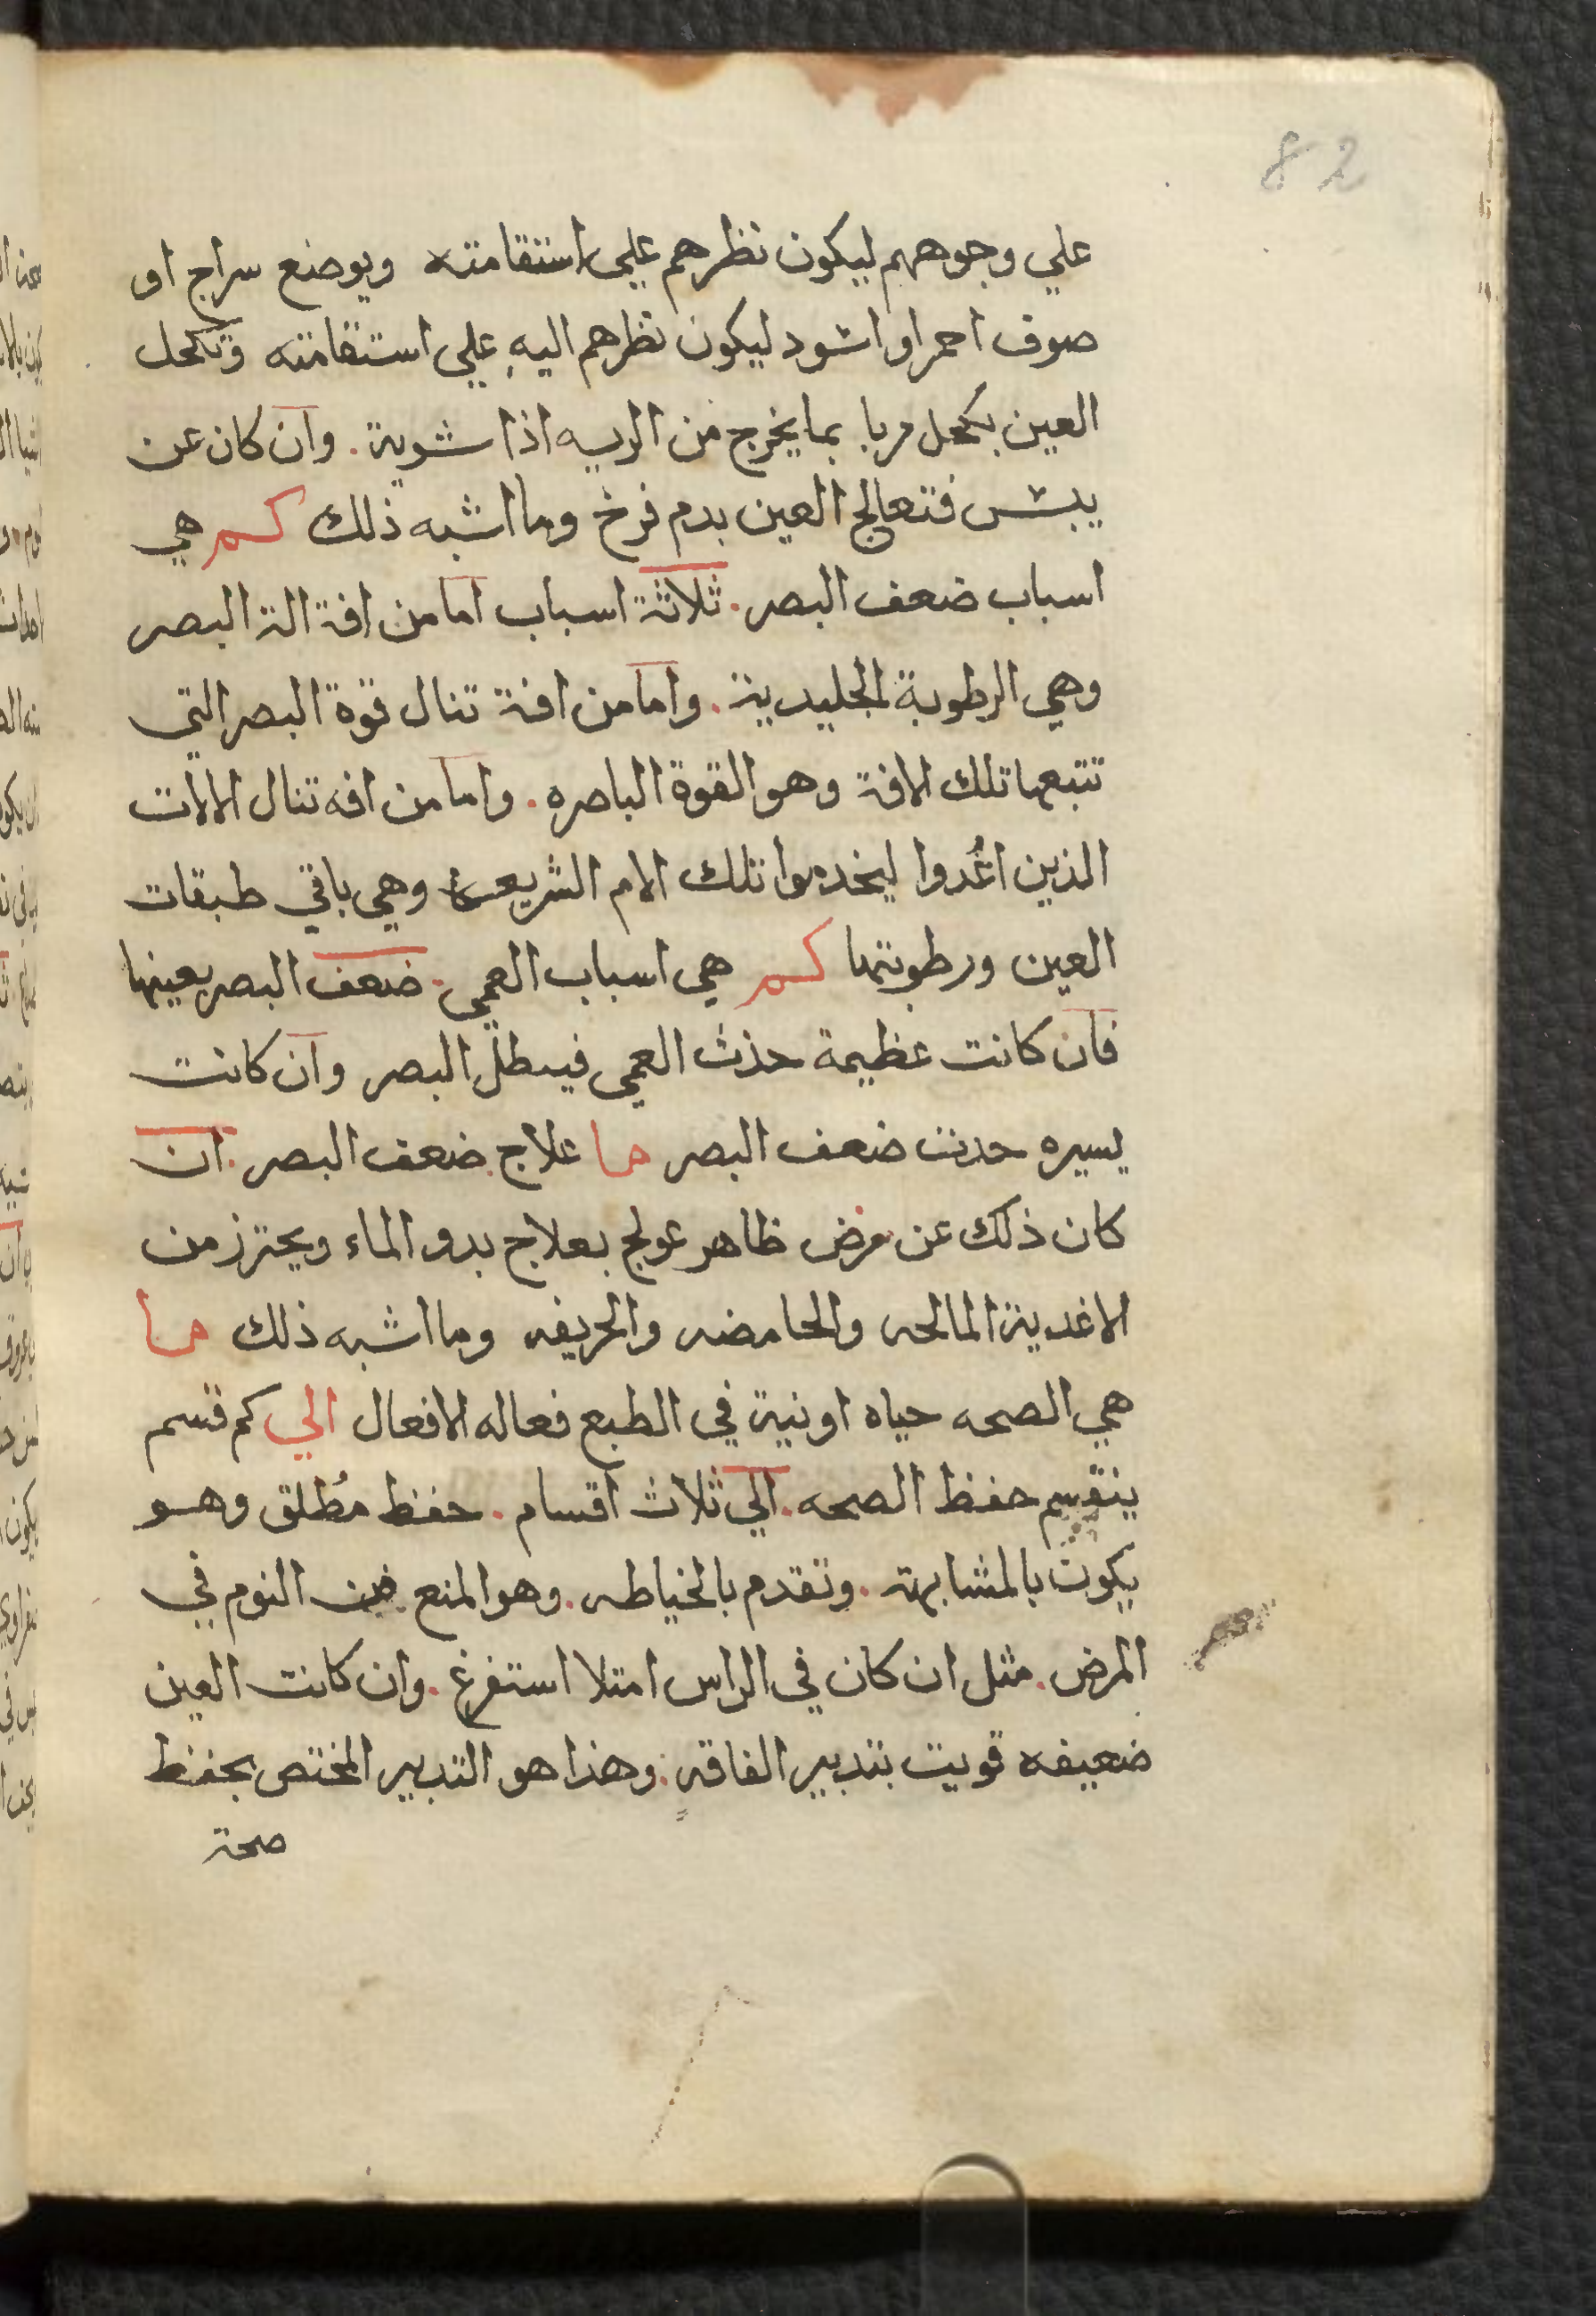 82
علي وجوههم ليكون نظرهم علي استقامته ويوضع سراج او
صوف احمر او اشود ليكون نظرهم اليه علي استقامته وتكحل
العين بكحل مربا بما يخرج من الريه اذا شوية. وان كان عن
يبش فتعالج العين بدم فرخ وما اشبه ذلك كم هي
اسباب ضعف البصر. ثلاثة اسباب اما من افة الة البصر
وهي الرطوبة الجليدية. واما من افة تنال قوة البصر التي
تتبعها تلك الافة وهو القوة الباصره. واما من افه تنال الالات
الذين اغُدوا ليخدموا تلك الام الشريعة وهي باقي طبقات
العين ورطوبتها كم هي اسباب العمي. ضعف البصر بعينها
فان كانت عظيمة حذث العمي فيبطل البصر وان كانت
يسيره حدث ضعف البصر ما علاج ضعف البصر. ان
كان ذلك عن مرض ظاهر عولج بعلاج بدو الماء ويحترز من
الاغدية المالحه والحامضه والحريفه وما اشبه ذلك ما
هي الصحه حياه او نية في الطبع فعاله الافعال الي كم قسم
ينقسم حفظ الصحه. الي ثلاث اقسام. حفظ مُطلق وهو
يكون بالمشابهة. وتقدم بالخياطه. وهو المنع من النوم في
المرض. مثل ان كان في الراس امتلا استفرغ. وان كانت العين
ضعيفه قويت بتدبير الفاقه. وهذا هو التدبير المختص بحفظ
صحة